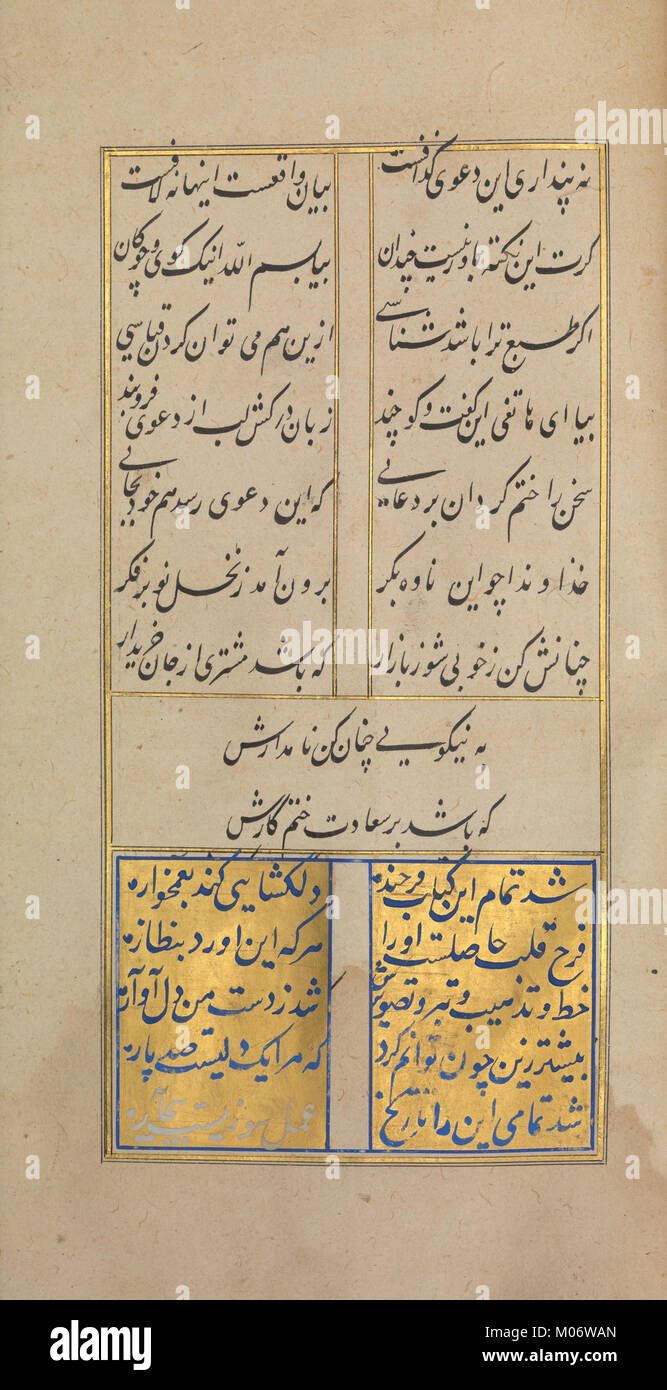 نه پنداری این دعوی گزافست
بیان واقعست اینها نه لافست
کرت این نکته باور نیست چندان
بیا بسم الله اینک کوی و چوکان
اکر طبع ترا باشد شناسی
ازین هم می توان کردن قیاسی
بیا ای هاتفی این کفت و کو چند
زبان درکش لب از دعوی فروبند
سخن را ختم کردان بر دعایی
که این دعوی رسد هم خود بجایی
خداوندا چو این ناوه بکر
برون آمد ز نخل نوبر فکر
چنانش کن ز خوبی شوز بازار
که باشد مشتری از جان خریدار
به نیکویی چنان کن نامدارش
که باشد بر سعادت ختم کارش
شد تمام این کتاب فرخنده
دلکشایی کند بغمخواره
فرح قلب حاصلست اورا
هر که این اورد بنظاره
خط و تذهیب و تصویرش
شد ز دست من دل آواره
بیشتر زین چون توانم کرد
که مرا یک دلیست صد پاره
شد تمامی این را تاریخ
عمل
a
alamy
Image ID: M06WAN
www.alamy.com